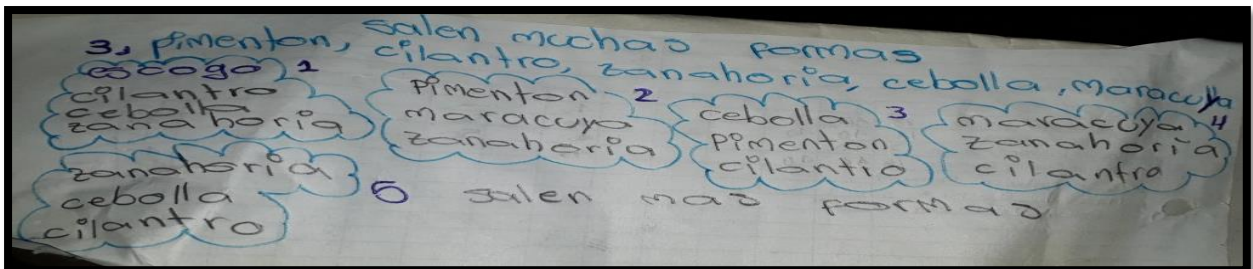 3, Pimenton, salen muchas formas
cilantro, zanahoria, cebolla, maracuya
escogo 1
cilantro
cebolla
zanahoria
Pimenton 2
maracuya
zanahoria
cebolla 3
Pimenton
cilantro
maracuya 4
zanahoria
cilantro
zanahoria
cebolla
cilantro
5 salen mas formas